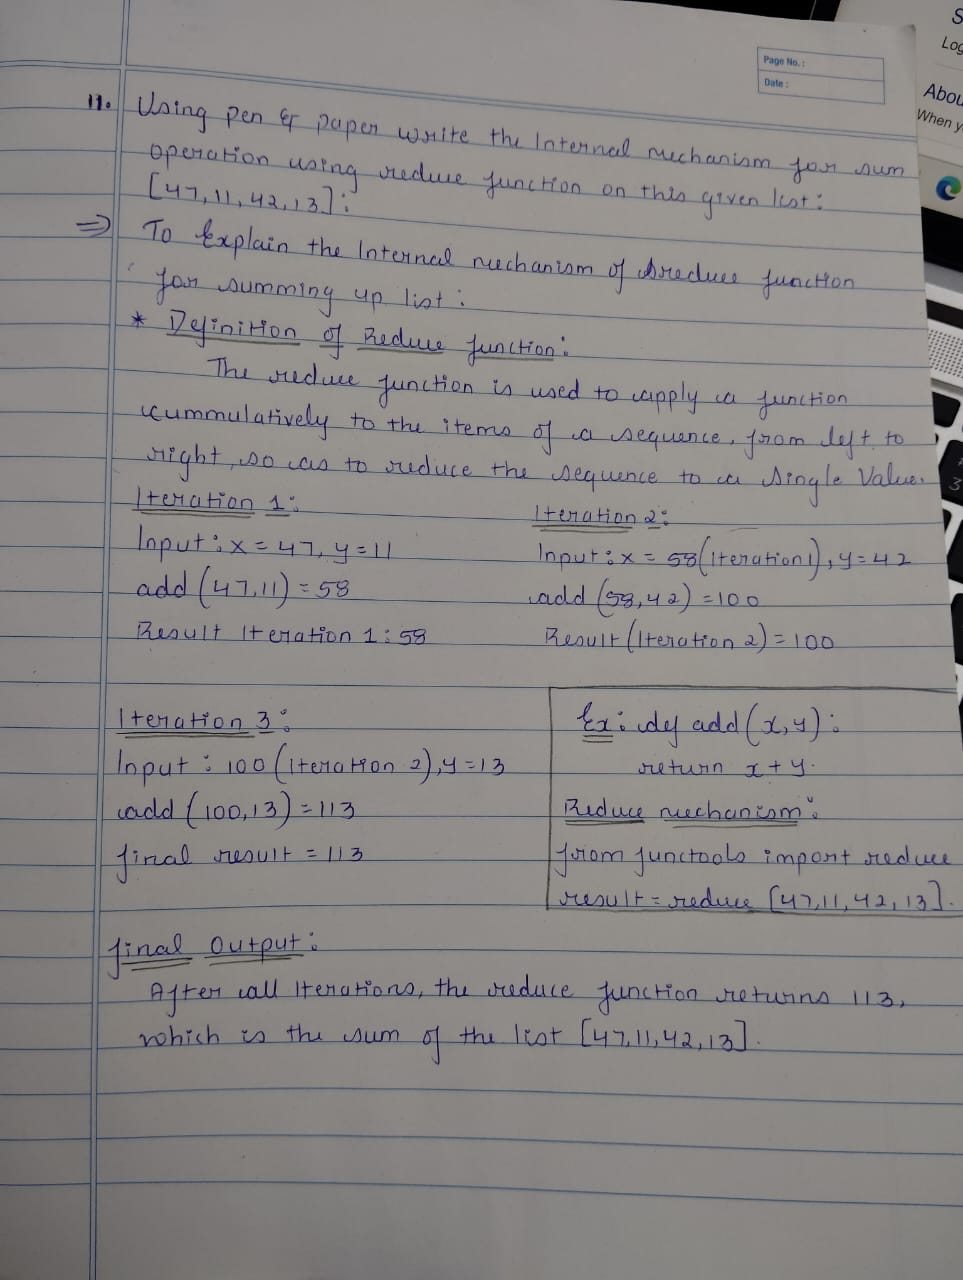 Page No. :
Date :
S
Log
Abou
When y
11. Using pen & paper write the Internal mechanism for sum
operation using reduce function on this given list:
[47,11,42,13]:
⇒ To Explain the Internal mechanism of reduce function
for summing up list:
* Definition of Reduce function:
The reduce function is used to apply a function
cummulatively to the items of a sequence, from left to
right, so as to reduce the sequence to a Single Value.
Iteration 1:
Input: x = 47, y = 11
add (47,11) = 58
Result Iteration 1: 58
Iteration 2:
Input: x = 58 (Iteration 1), y = 42
add (58,42) = 100
Result (Iteration 2) = 100
Iteration 3:
Input : 100 (Iteration 2), y = 13
add (100,13) = 113
final result = 113
Ex: def add (x,y):
return x+y.
Reduce mechanism:
from functools import reduce
result = reduce [47,11,42,13].
final Output:
After all Iterations, the reduce function returns 113,
which is the sum of the list [47,11,42,13].
3